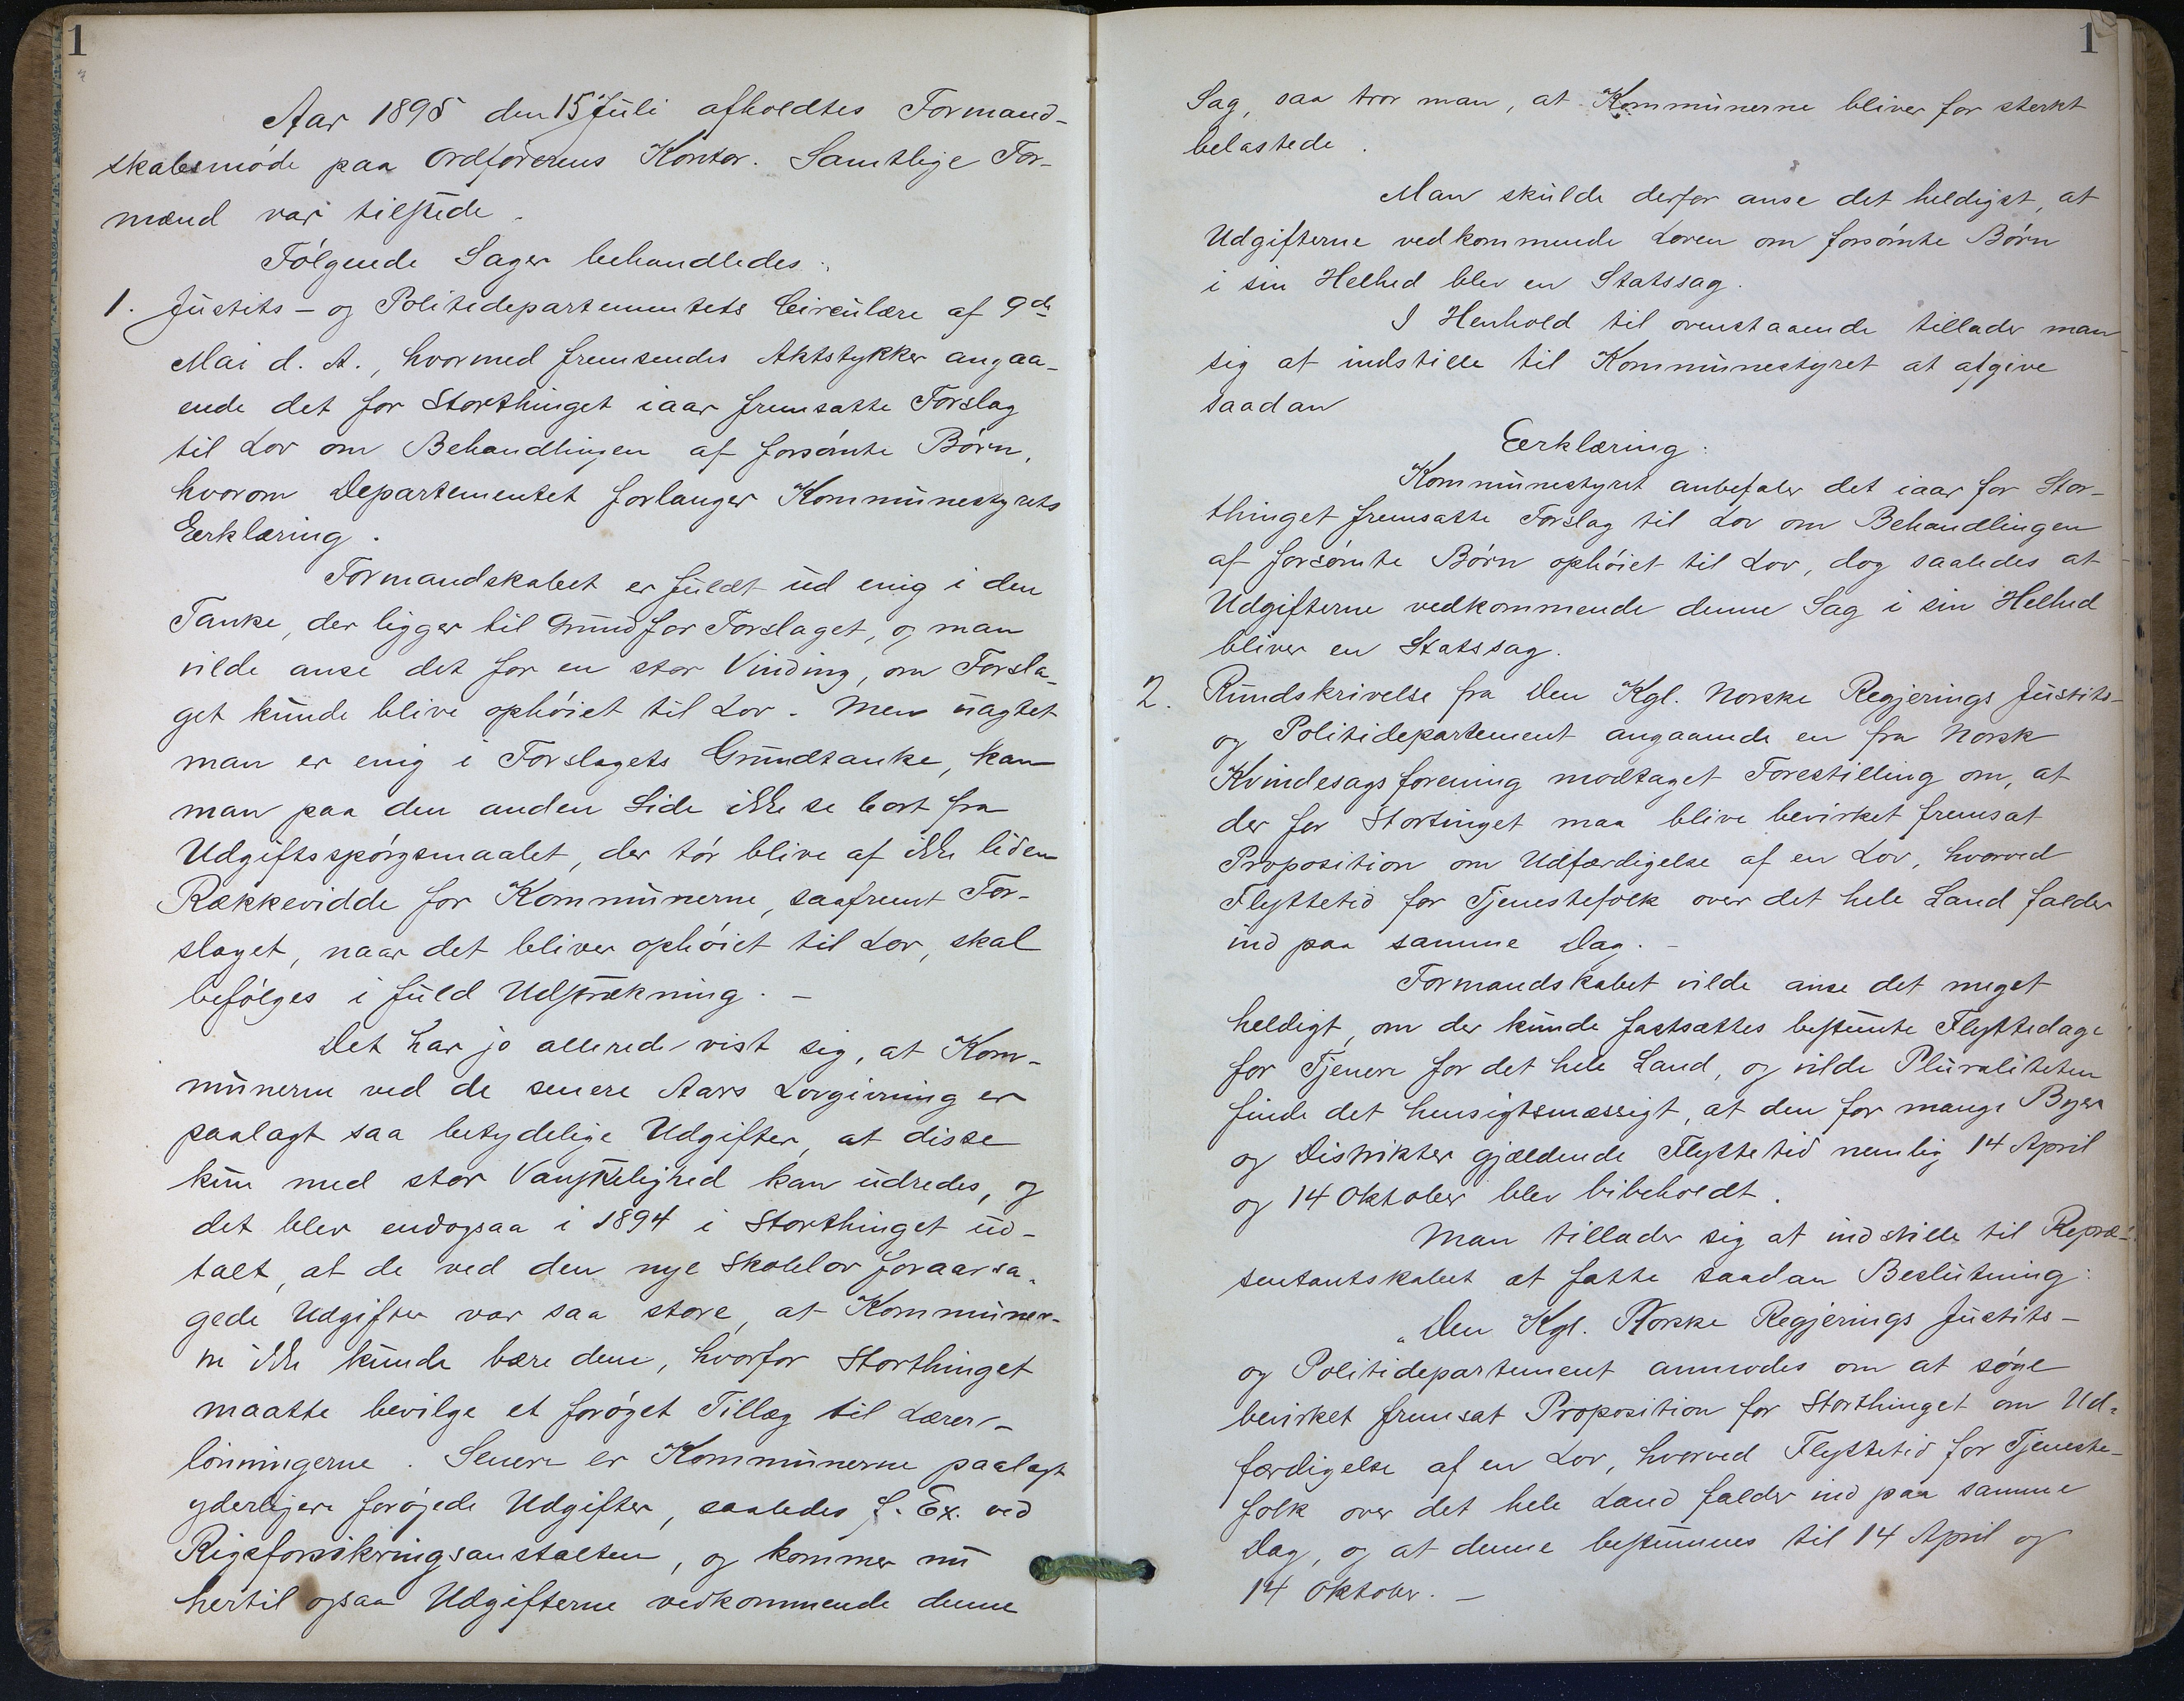 1
Aar 1895 den 15 Juli afholdtes Formand-
skabsmøde paa Ordførerens Kontor. Samtlige For-
mænd var tilstede.
Følgende Sager behandledes:
1. Justits- og Politidepartementets Circulære af 9de
Mai d. A., hvormed fremsendes Aktstykker angaa-
ende det for Storthinget iaar fremsatte Forslag
til Lov om Behandlingen af forsømte Børn,
hvorom Departementet forlanger Kommunestyrets
Erklæring.
Formandskabet er fuldt ud enig i den
Tanke, der ligger til Grund for Forslaget, og man
vilde anse det for en stor Vinding, om Forsla-
get kunde blive ophøiet til Lov. Men uagtet
man er enig i Forslagets Grundtanke, kan
man paa den anden Side ikke se bort fra
Udgiftsspørgsmaalet, der tør blive af ikke liden
Rækkevidde for Kommunerne, saafremt For-
slaget, naar det bliver ophøiet til Lov, skal
befølges i fuld Udstrækning. -
Det har jo allerede vist sig, at Kom-
munerne ved de senere Aars Lovgivning er
paalagt saa betydelige Udgifter, at disse
kun med stor Vanskelighed kan udredes, og
det blev endogsaa i 1894 i Storthinget ud-
talt, at de ved den nye Skolelov foraarsa-
gede Udgifter var saa store, at Kommuner-
ne ikke kunde bære dem, hvorfor Storthinget
maatte bevilge et forøget Tillæg til Lærer-
lønningerne. Senere er Kommunerne paalagt
yderligere forøgede Udgifter, saaledes f. Ex. ved
Rigsforsikringsanstalten, og kommer nu
hertil ogsaa Udgifterne vedkommende denne
1
Sag, saa tror man, at Kommunerne bliver for sterkt
belastede.
Man skulde derfor anse det heldigst, at
Udgifterne vedkommende Loven om forsømte Børn
i sin Helhed blev en Statssag.
I Henhold til ovenstaaende tillader man
sig at indstille til Kommunestyret at afgive
saadan
Erklæring:
Kommunestyret anbefaler det iaar for Stor-
thinget fremsatte Forslag til Lov om Behandlingen
af forsømte Børn ophøiet til Lov, dog saaledes at
Udgifterne vedkommende denne Sag i sin Helhed
bliver en Statssag.
2. Rundskrivelse fra Den Kgl. Norske Regjerings Justits-
og Politidepartement angaaende en fra Norsk
Kvindesagsforening modtaget Forestilling om, at
der for Stortinget maa blive bevirket fremsat
Proposition om Udfærdigelse af en Lov, hvorved
Flyttetid for Tjenestefolk over det hele Land falder
ind paa samme Dag. -
Formandskabet vilde anse det meget
heldigt, om der kunde fastsættes bestemte Flyttedage
for Tjenere for det hele Land, og vilde Pluraliteten
finde det hensigtsmæssigt, at den for mange Byer
og Distrikter gjældende Flyttetid nemlig 14 April
og 14 Oktober blev bibeholdt.
Man tillader sig at indstille til Repræ-
sentantskabet at fatte saadan Beslutning:
"Den Kgl. Norske Regjerings Justits-
og Politidepartement anmodes om at søge
bevirket fremsat Proposition for Storthinget om Ud-
færdigelse af en Lov, hvorved Flyttetid for Tjeneste-
folk over det hele Land falder ind paa samme
Dag, og at denne bestemmes til 14 April og
14 Oktober. -